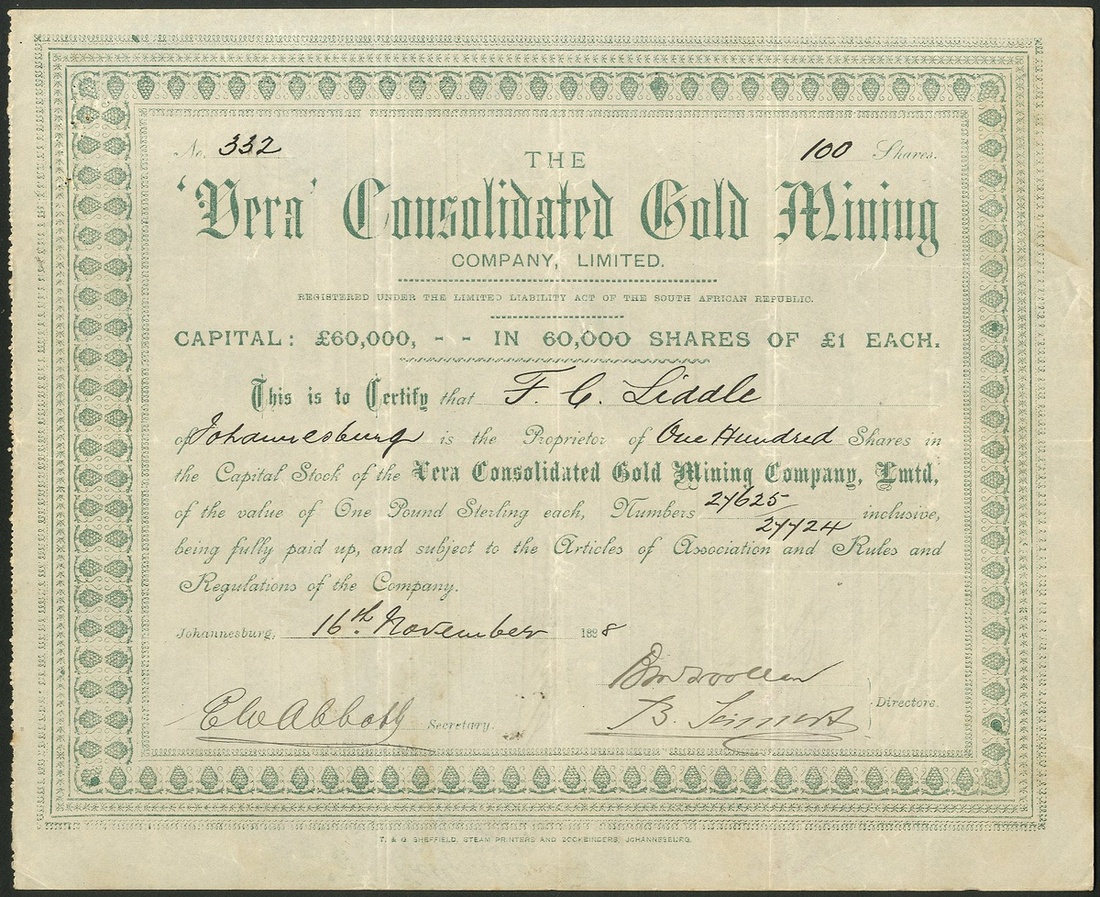 No. 332
100 Shares.
THE
'Vera' Consolidated Gold Mining
COMPANY, LIMITED.
REGISTERED UNDER THE LIMITED LIABILITY ACT OF THE SOUTH AFRICAN REPUBLIC.
CAPITAL: £60,000, - - IN 60,000 SHARES OF £1 EACH.
This is to Certify that F. C. Liddle
of Johannesburg is the Proprietor of One Hundred Shares in
the Capital Stock of the Vera Consolidated Gold Mining Company, Lmtd,
of the value of One Pound Sterling each, Numbers 27625/27724 inclusive,
being fully paid up, and subject to the Articles of Association and Rules and
Regulations of the Company.
Johannesburg, 16th November 1888
Directors.
C W Abbott Secretary.
T. & G. SHEFFIELD, STEAM PRINTERS AND BOOKBINDERS, JOHANNESBURG.